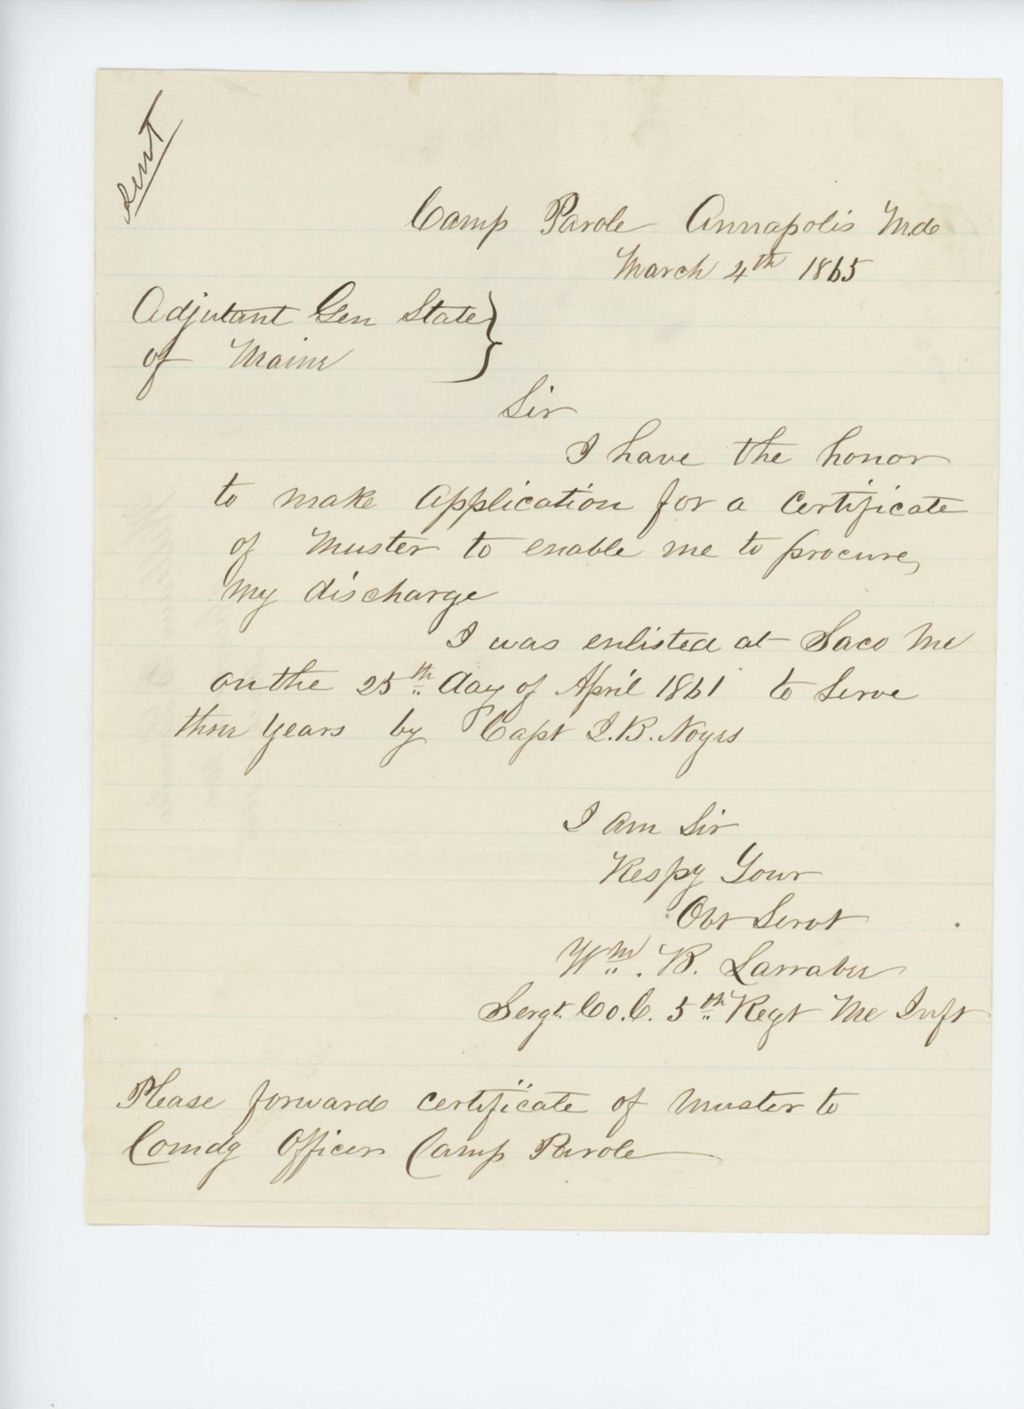 Sent
Camp Parole Annapolis Md
March 4th 1865
Adjutant Gen State
of Maine
Sir
I have the honor
to make Application for a Certificate
of Muster to enable me to procure,
my discharge
I was enlisted at Saco Me
on the 25th day of April 1861 to Serve
three Years by Capt I.B. Noyes
I am Sir
Respy Your
Obt Servt
Wm. B. Larrabee
Sergt. Co. C. 5th Regt Me Inft
Please forward certificate of Muster to
Comdg Officer Camp Parole